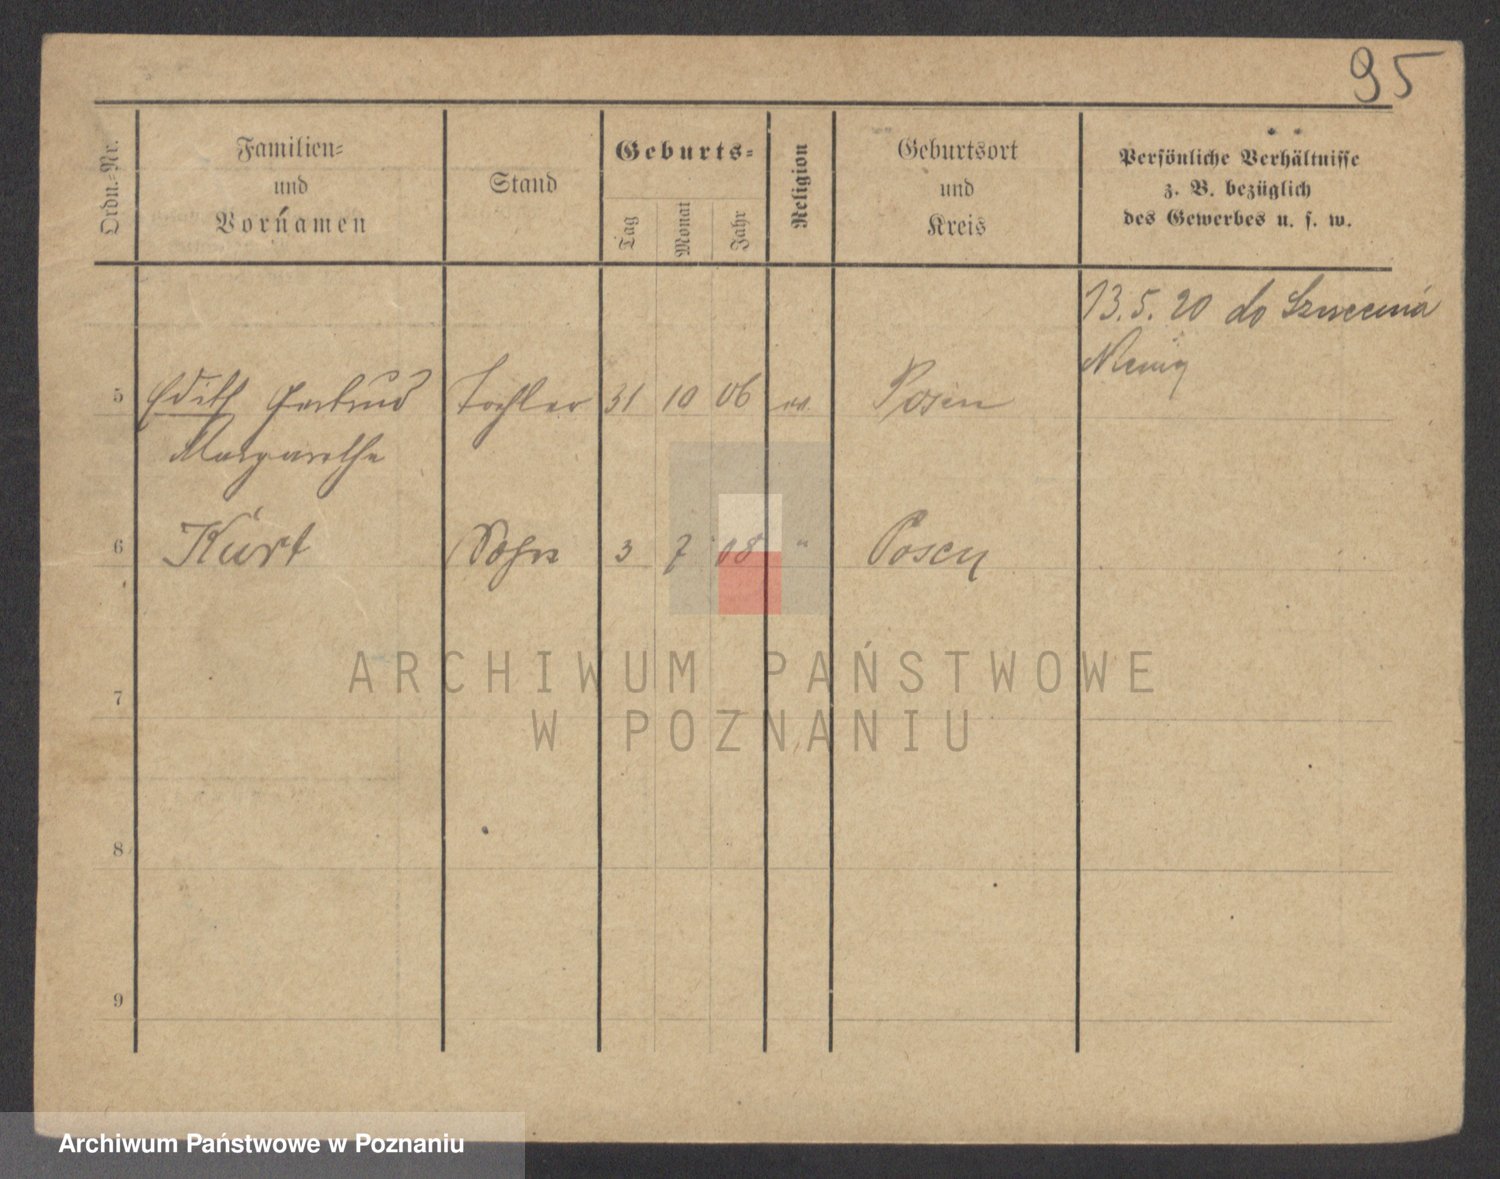 95
Ordn.-Nr.
Familien-
und
Vornamen
Stand
Geburts-
Tag
Monat
Jahr
Religion
Geburtsort
und
Kreis
Persönliche Verhältnisse
z. B. bezüglich
des Gewerbes u. s. w.
13.5.20 do Szczecina
5 Edith Gertrud Tochter 31 10 06 ev. Posen
Margarethe
6 Kurt Sohn 3 7 08 " Posen
7
8
9
ARCHIWUM PAŃSTWOWE
W POZNANIU
Archiwum Państwowe w Poznaniu